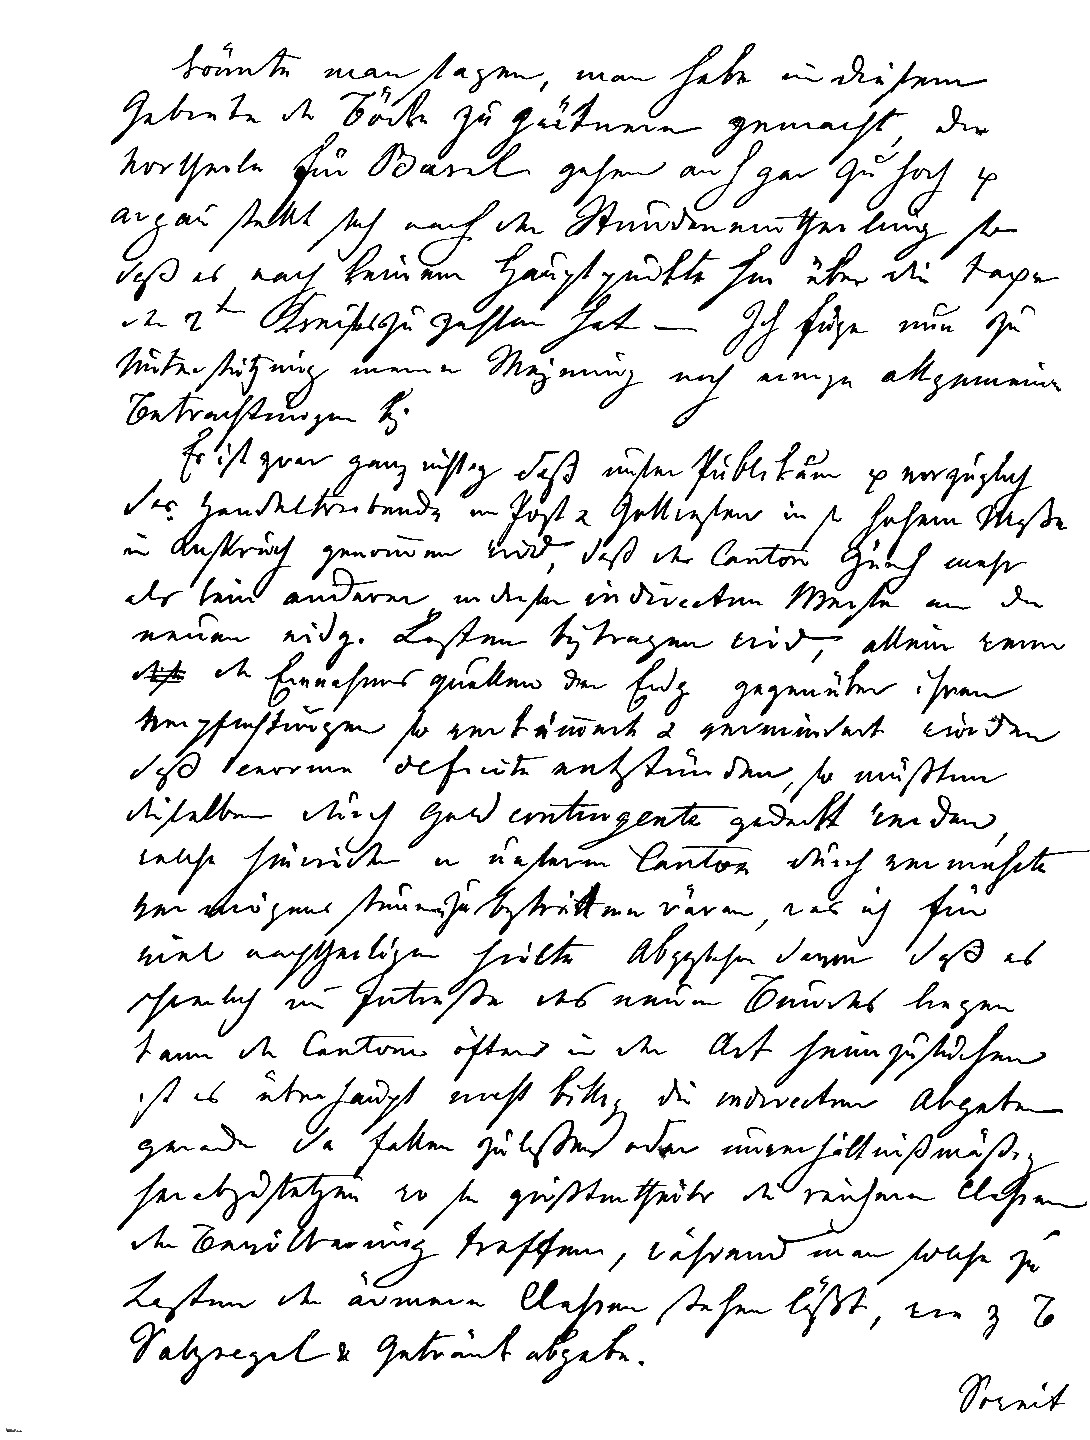 könnte man sagen, man habe in diesem
Gebiete die Böcke zu Gärtnern gemacht, die
Vortheile für Basel gehen auch gar zu hoch &
Argau stellt sich nach der Stundeneintheilung so
daß es nach keinem Hauptpunkte hin über die Taxe
des 2t Kreises zu zahlen hat — Ich füge nun zu
Unterstützung meiner Meinung noch einige allgemeine
Betrachtungen bei.
Es ist zwar ganz richtig daß unser Publikum & vorzüglich
das Handeltreibende im Post & Zollwesen in so hohem Maße
in Anspruch genommen wird, daß der Canton Zürich mehr
als kein anderer in dieser indirecten Weise an die
neuen eidg. Lasten beytragen wird, allein wenn
die Einnahmsquellen der Eidg gegenüber ihren
Verpflichtungen so verkümmert & vermindert würden
daß enorme deficite entstünden, so müßten
dieselben durch Geldcontingente gedeckt werden,
welche hinwieder in unserem Canton durch vermehrte
Vermögenssteuern zu bestreiten wären, was ich für
viel nachtheiliger hielte Abgesehen davon daß es
schwerlich im Intreße des neuen Bundes liegen
kann die Cantone öfters in der Art heimzusuchen
ist es überhaupt nicht billig die indirecten Abgaben
gerade da fallen zu laßen oder unverhältnißmäßig
herabzusetzen wo sie größtentheils die reichern Classen
der Bevölkerung treffen, während man solche zu
Lasten der ärmern Classen stehen läßt, wie z B
Salzregal & Getränkabgabe.
Somit